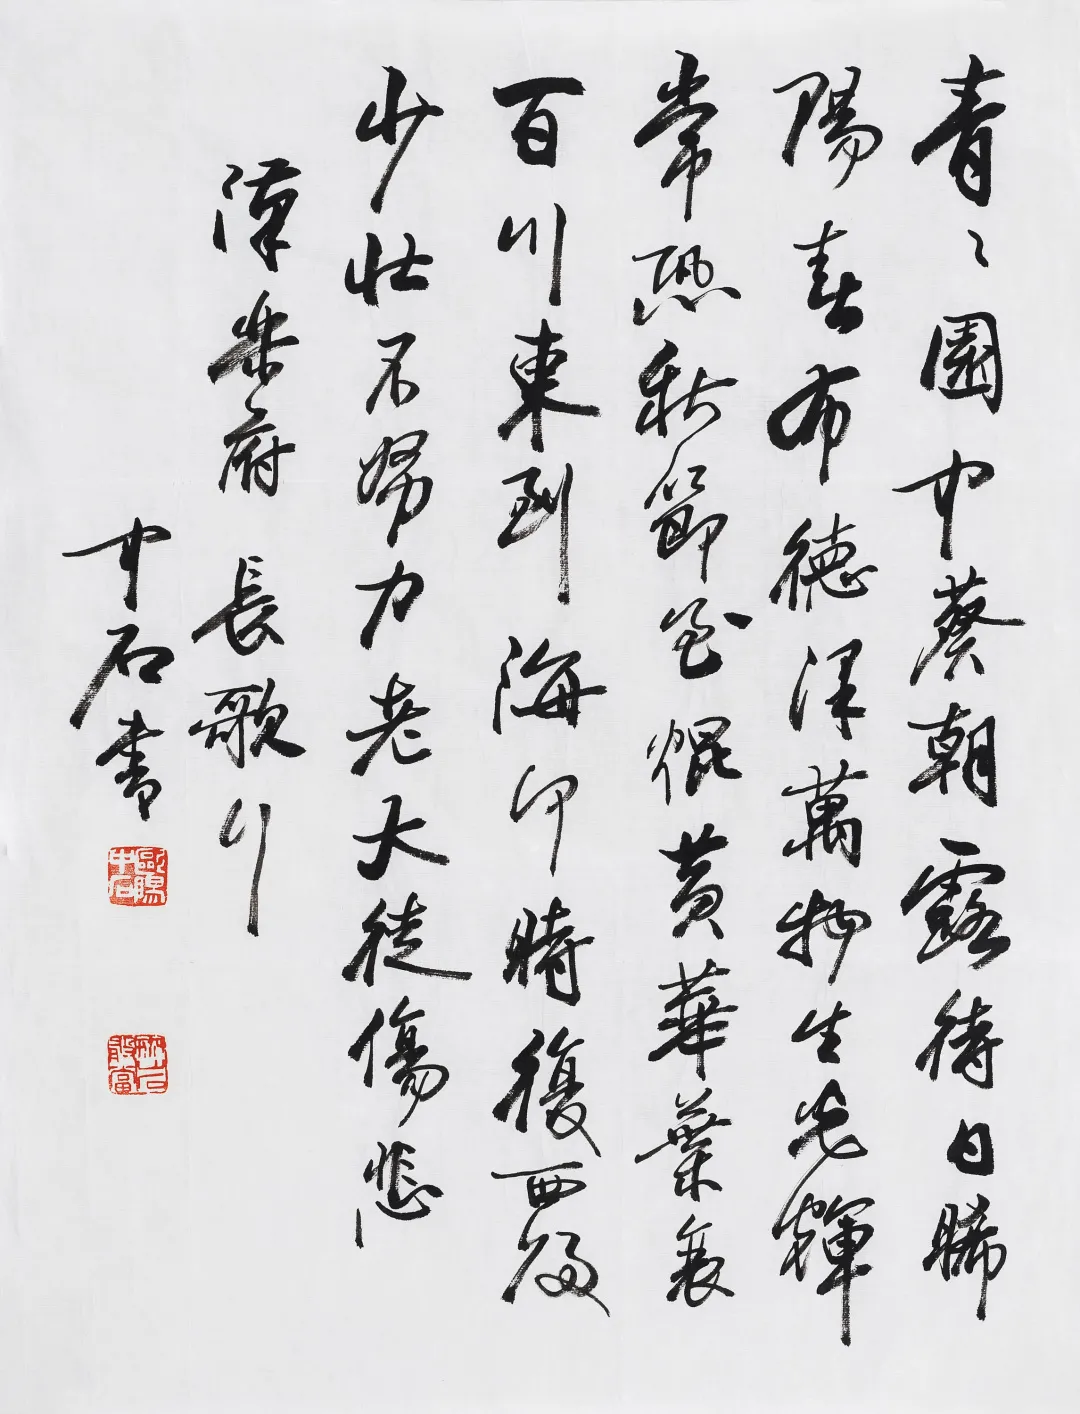 青〻園中葵朝露待日晞
陽春布德澤萬物生光輝
常恐秋節至焜黄華葉衰
百川東到海何時復西歸
少壯不努力老大徒傷悲
漢樂府 長歌行
中石書
歐陽中石